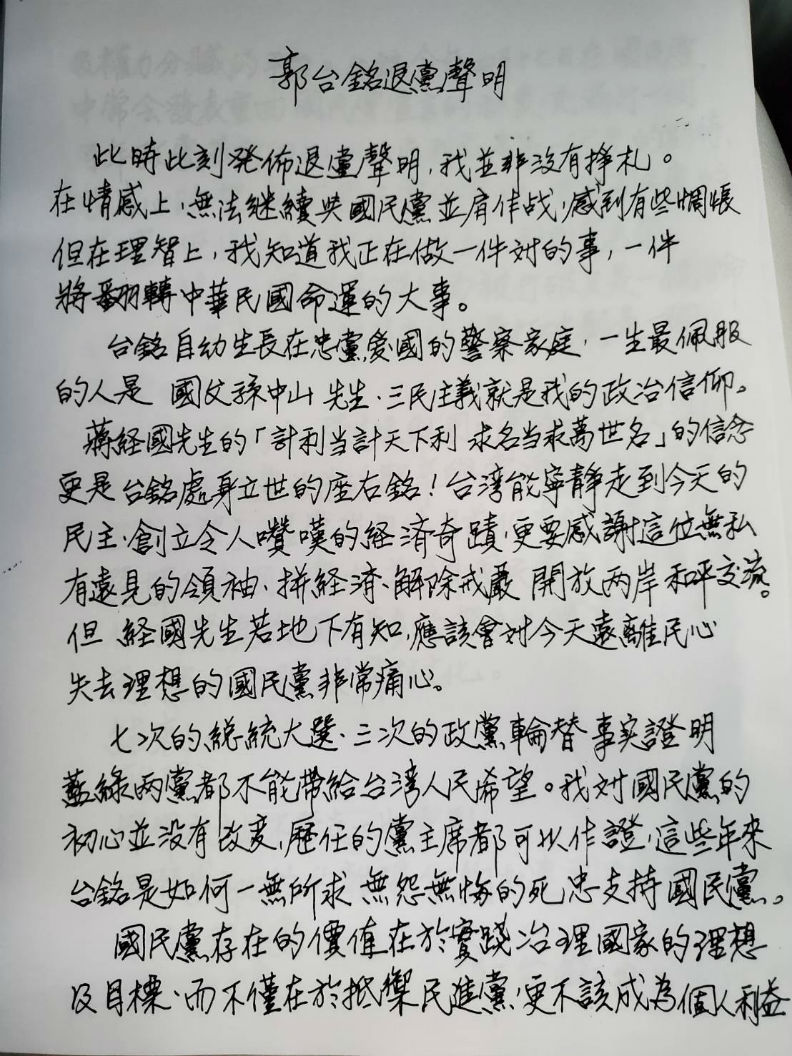 郭台銘退黨聲明
此時此刻発佈退黨聲明，我並非没有掙札。
在情感上，無法継續與國民黨並肩作战，感到有些惆悵
但在理智上，我知道我正在做一件对的事，一件
將翻轉中華民國命運的大事。
台銘自幼生長在忠黨愛國的警察家庭，一生最佩服
的人是 國父孫中山 先生．三民主義就是我的政治信仰。
蔣経國先生的「計利当計天下利 求名当求萬世名」的信念
更是台銘處身立世的座右銘！台湾能寧靜走到今天的
民主，創立令人嘖嘆的経済奇蹟，更要感謝這位無私
有遠見的領袖、拼経済、解除戒嚴 開放两岸和平交流。
但 経國先生若地下有知，應該會对今天遠離民心
失去理想的國民黨非常痛心。
七次的総統大選．三次的政黨輪替 事实證明
藍綠两黨都不能帶給台湾人民希望。我对國民黨的
初心並没有改変，歷任的黨主席都可以作證，這些年來
台銘是如何一無所求 無怨無悔的死忠支持國民黨。
國民黨存在的價值在於實踐治理國家的理想
及目標．而不僅在於抵禦民進黨，更不該成為個人利益